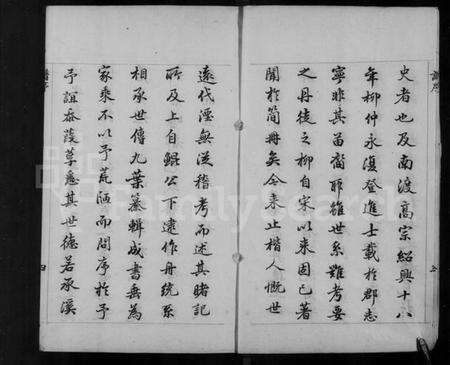 史者也及南渡高宗紹興十八
年柳仲永復登進士載於郡志
寧非其苗裔耶雖世系難考要
之丹徒之柳自宋以來固已著
聞於簡冊矣今来止楷人慨世
遠代湮無從稽考而述其睹記
所及上自鯤公下逮作舟統系
相承世傳九葉纂輯成書垂為
家乘不以予荒陋而問序於予
予誼忝葭莩悉其世德若承溪
譜序
FamilySearch